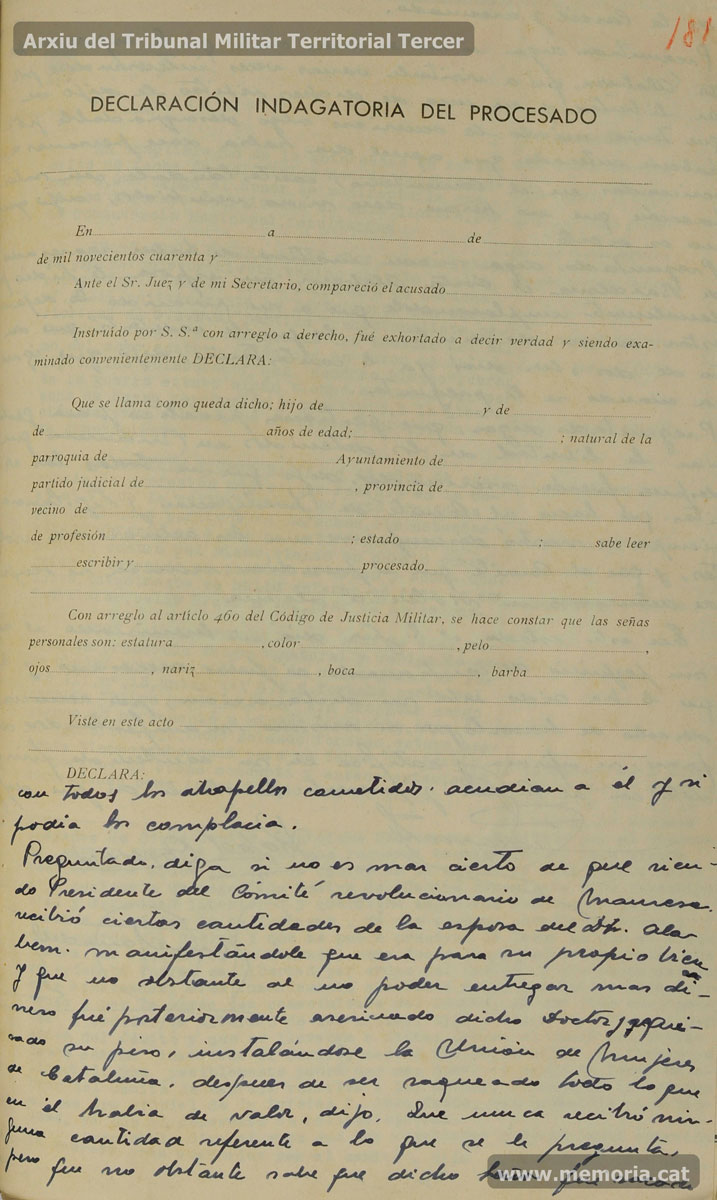 Arxiu del Tribunal Militar Territorial Tercer
181
DECLARACIÓN INDAGATORIA DEL PROCESADO
En a de
de mil novecientos cuarenta y
Ante el Sr. Juez y de mi Secretario, compareció el acusado
Instruído por S. S.ª con arreglo a derecho, fué exhortado a decir verdad y siendo exa-
minado convenientemente DECLARA:
Que se llama como queda dicho; hijo de y de
de años de edad; ; natural de la
parroquia de Ayuntamiento de
partido judicial de , provincia de
vecino de
de profesión ; estado ; sabe leer
escribir y procesado
Con arreglo al artíclo 460 del Código de Justicia Militar, se hace constar que las señas
personales son: estatura , color , pelo ,
ojos , nariz , boca , barba
Viste en este acto
DECLARA:
con todos los atropellos cometidos. acudian a él y si
podia los complacia.
Preguntado, diga si no es mas cierto de que sien-
do Presidente del Cómité revolucionario de Manresa.
recibió ciertas cantidades de la esposa del Dr. Ala-
bern. manifestándole que era para su propio bien
Y que no obstante al no poder entregar mas di-
nero fué posteriormente asesinado dicho Doctor y requi-
sado su piso, instalándose la Unión de Mujeres
de Cataluña, despues de ser saqueado todo lo que
en él habia de valor, dijo. Que nunca recibió nin-
guna cantidad referente a lo que se le pregunta,
pero que no obstante sabe que dicho fue
www.memoria.cat